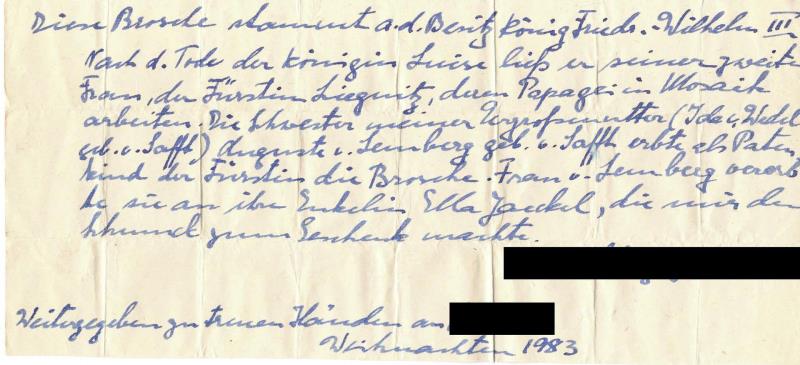 Diese Brosche stammt a. d. Besitz König Friedr.-Wilhelm III
Nach d. Tode der Königin Luise ließ er seiner zweiten
Frau, der Fürstin Liegnitz, deren Papagei in Mosaik
arbeiten. Die Schwester meiner Urgroßmutter (Ida v. Wedel
geb. v. Saffft) Auguste v. Lemberg geb. v. Saffft erbte als Paten,
kind der Fürstin die Brosche. Frau v. Lemberg vererb
te sie an ihre Enkelin Ella Jaeckel, die mir den
Schmuck zum Geschenk machte.
Weitergegeben zu treuen Händen an
Weihnachten 1983